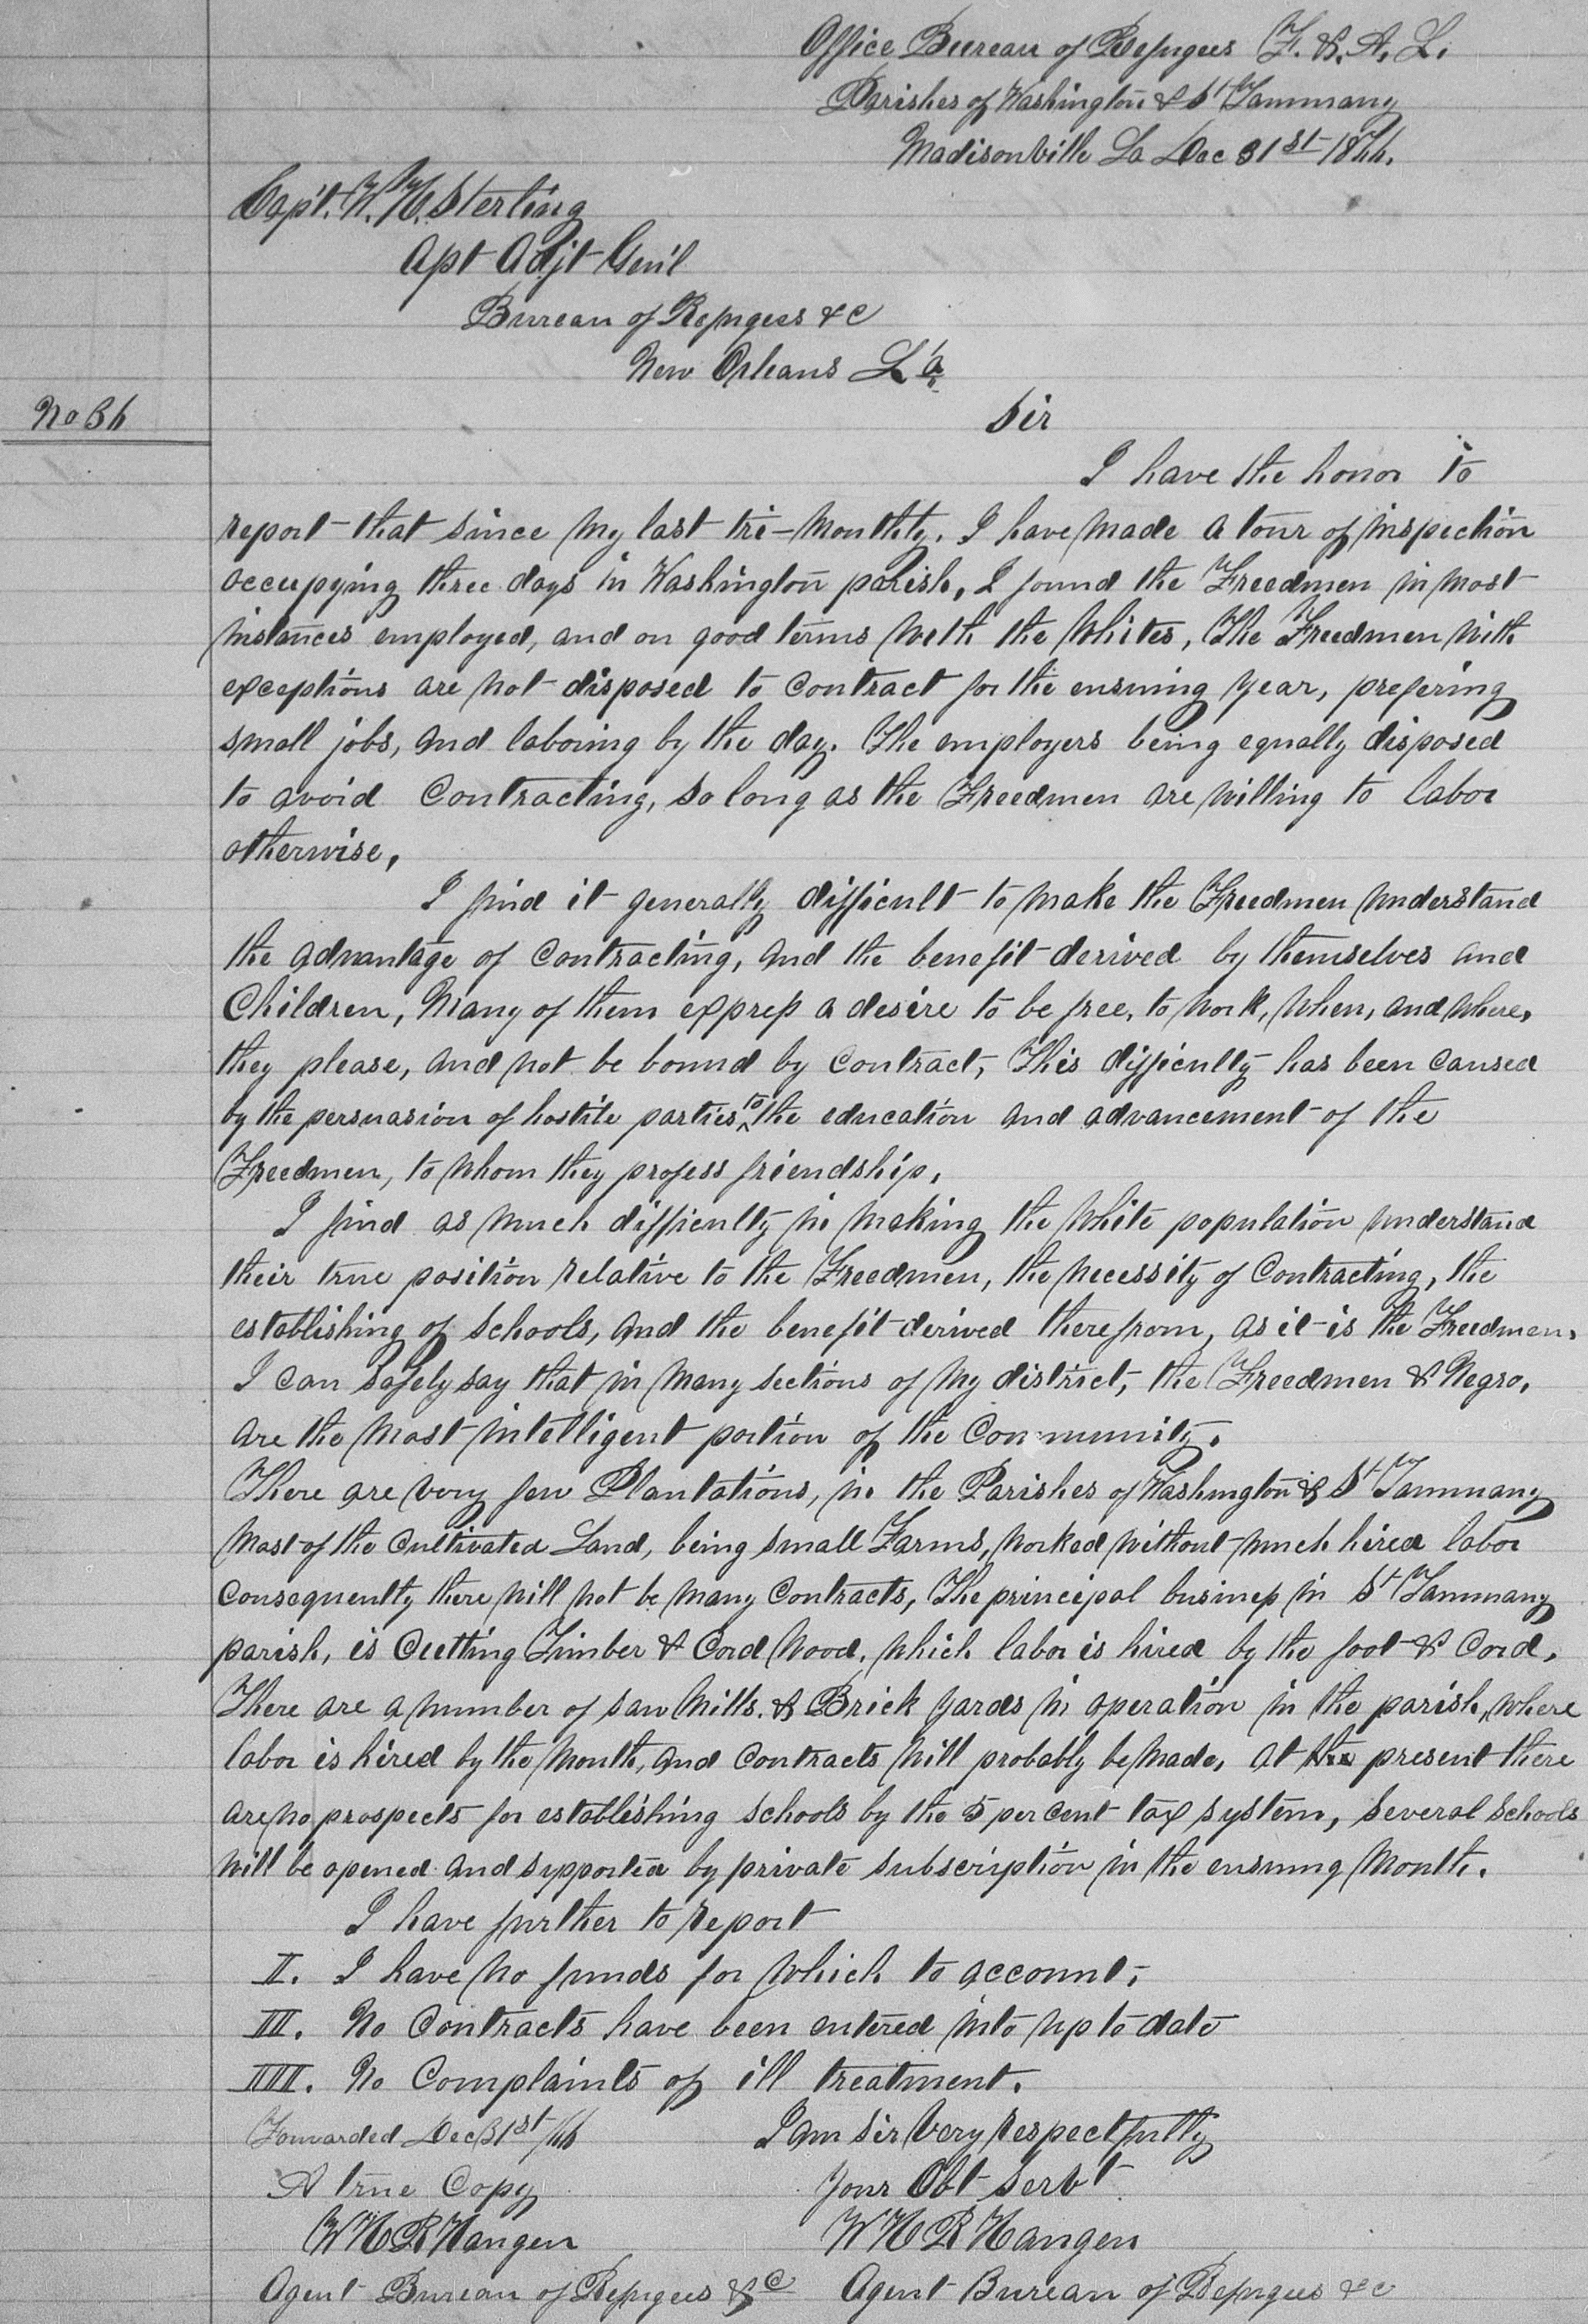 Office Bureau of Refugees F. & A. L.
Parishes of Washington & St Tammany
Madisonville La Dec 31st 1866.
Capt. W. H. Sterling
Apt Adjt Genl
Bureau of Refugees &c
New Orleans La
No 36
Sir
I have the honor to
report that since my last tri-monthly, I have made a tour of inspection
occupying three days in Washington parish, I found the Freedmen in most
instances employed, and on good terms with the Whites, The Freedmen with
exceptions are not disposed to contract for the ensuing year, prefering
small jobs, and laboring by the day. The employers being equally disposed
to avoid Contracting, so long as the Freedmen are willing to labor
otherwise,
I find it generally difficult to make the Freedmen understand
the advantage of contracting, and the benefit derived by themselves and
Children, Many of them express a desire to be free, to work, when, and where,
they please, and not be bound by contract, This difficulty has been caused
by the persuasion of hostile parties to the education and advancement of the
Freedmen, to whom they profess friendship,
I find as much difficulty in making the white population understand
their true position relative to the Freedmen, the necessity of Contracting, the
establishing of schools, and the benefit derived therefrom, as it is the Freedmen,
I can safely say that in many sections of my district, the Freedmen & Negro,
are the most intelligent portion of the Community.
There are very few Plantations, in the Parishes of Washington & St Tammany
Most of the Cultivated Land, being small Farms, worked without much hired labor
Consequently there will not be many Contracts, The principal business in St Tammany
parish, is Cutting Timber & Cord Wood, which labor is hired by the foot & Cord,
There are a number of saw Mills, & Brick yards in operation in the parish, where
labor is hired by the Month, and Contracts will probably be made, at the present there
are no prospects for establishing schools by the 5 per cent tax system, several schools
will be opened and supported by private subscription in the ensuing Month.
I have further to report
II. I have no funds for which to account,
III. No Contracts have been entered into up to date
IIII. No Complaints of ill treatment.
Forwarded Dec 31st/66
I am Sir Very respectfully
A true Copy
Your Obt Servt
W H R Hangen
W H R Hangen
Agent Bureau of Refugees &c
Agent Bureau of Refugees &c